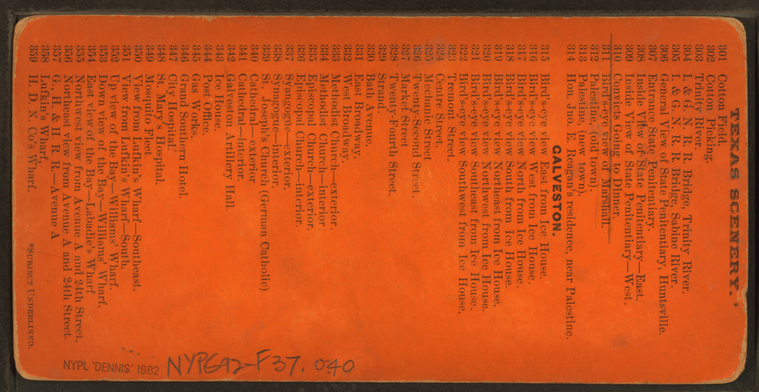 TEXAS SCENERY.*
301 Cotton Field.
302 Cotton Picking.
303 Trinity River.
304 I. & G. N. R. R. Bridge, Trinity River.
305 I. & G. N. R. R. Bridge, Sabine River.
306 General View of State Penitentiary, Huntsville.
307 Entrance State Penitentiary.
308 Inside View of State Penitentiary—East.
309 Inside View of State Penitentiary—West.
310 Convicts going to Dinner.
311 Bird's-eye view of Marshall.
312 Palestine, (old town).
313 Palestine (new town).
314 Hon. Jno. E. Reagan's residence, near Palestine.
GALVESTON.
315 Bird's-eye view East from Ice House.
316 Bird's-eye view West from Ice House.
317 Bird's-eye view North from Ice House.
318 Bird's-eye view South from Ice House.
319 Bird's-eye view Northeast from Ice House.
320 Bird's-eye view Northwest from Ice House.
321 Bird's-eye view Southeast from Ice House.
322 Bird's-eye view Southwest from Ice House.
323 Tremont Street.
324 Centre Street.
325 Mechanic Street
326 Twenty-Second Street.
327 Market Street
328 Twenty-Fourth Street.
329 Strand.
330 Bath Avenue.
331 East Broadway.
332 West Broadway.
333 Methodist Church—exterior.
334 Methodist Church—interior
335 Episcopal Church—exterior.
336 Episcopal Church—interior.
337 Synagogue—exterior.
338 Synagogue—interior.
339 St. Joseph's Church (German Catholic)
340 Cathedral—exterior.
341 Cathedral—interior.
342 Galveston Artillery Hall.
343 Ice House.
344 Post Office.
345 Gas Works.
346 Grand Southern Hotel.
347 City Hospital.
348 St. Mary's Hospital.
349 Mosquito Fleet
350 View from Lufkin's Wharf—Southeast.
351 View from Lufkin's Wharf—South.
352 Up view of the Bay—Willins' Wharf.
353 Down view of the Bay—Willins' Wharf.
354 East view of the Bay—Labadie's Wharf
355 Northwest view from Avenue A and 24th Street.
356 Northeast view from Avenue A and 24th Street.
357 G., H. & H. R. R.—Avenue A
358 Lufkin's Wharf.
359 H. D. N. Co's Wharf.
*SUBJECT UNDERLINED.
NYPL 'DENNIS' 1982
NYPG92-F37.040